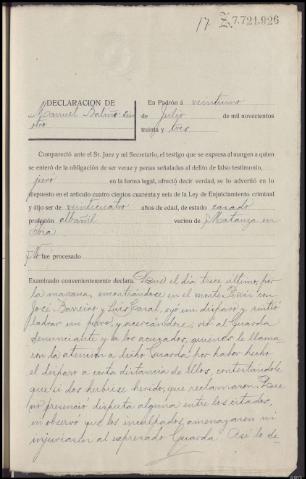 17 Z.7.721.926
DECLARACION DE
Manuel
En Padrón á veintiuno
de Julio de mil novecientos
treinta y tres
Compareció ante el Sr. Juez y mi Secretario, el testigo que se expresa al margen a quien
se enteró de la obligación de ser veraz y penas señaladas al delito de falso testimonio,
juró en la forma legal, ofreció decir verdad, se lo advertió en lo
dispuesto en el artículo cuatro cientos cuarenta y seis de la Ley de Enjuiciamiento criminal
y dijo ser de veinticuatro años de edad, de estado casado
profesión albañil vecino de Matanza en
Iria
No fue procesado
Examinado convenientemente declara: Que el día trece último, por
la mañana, encontrándose en el monte con
José Barreiro y Luis oyó un disparo y sintió
ladrar un perro y acercándose, vió al Guarda
denunciante y a los acusados, quienes le llama-
ron la atención a dicho Guarda por haber hecho
el disparo a corta distancia de ellos, contestándole
que si les hubiese herido, que reclamaran. Que
no presenció disputa alguna entre los citados,
ni observó que los inculpados amenazaren ni
injuriaren al expresado Guarda. Así lo de-